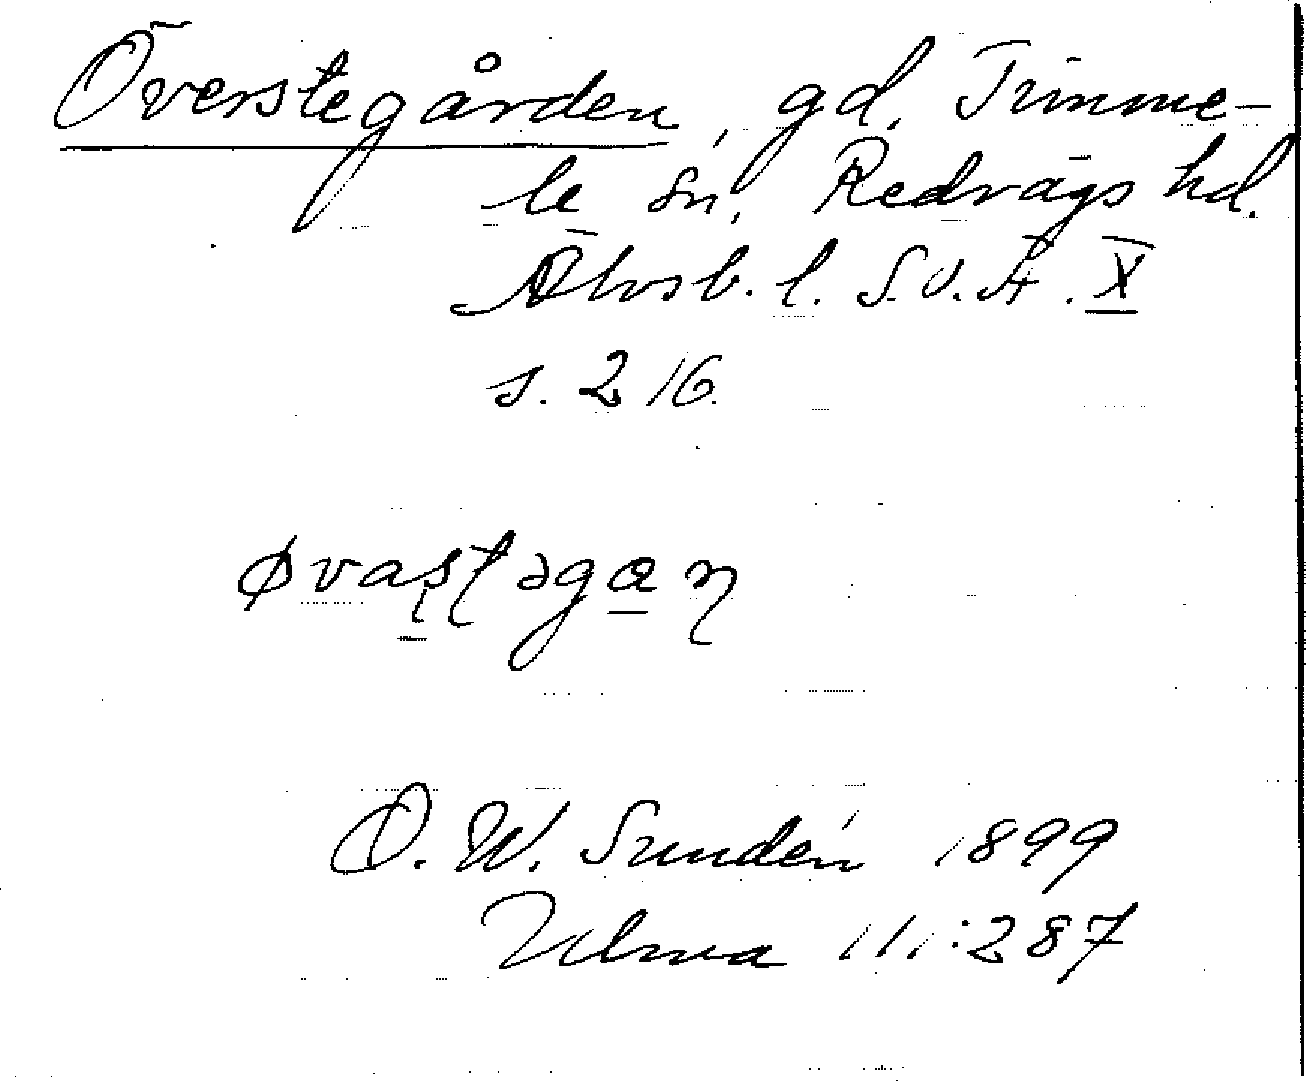 Överstegården, gd, Timme-
le sn, Redvägs hd.
Älvsb. l. S.O.Ä. X
s. 216.
øvaʂʈəgɑɳ
D. W. Sundén 1899
Ulma 111:287